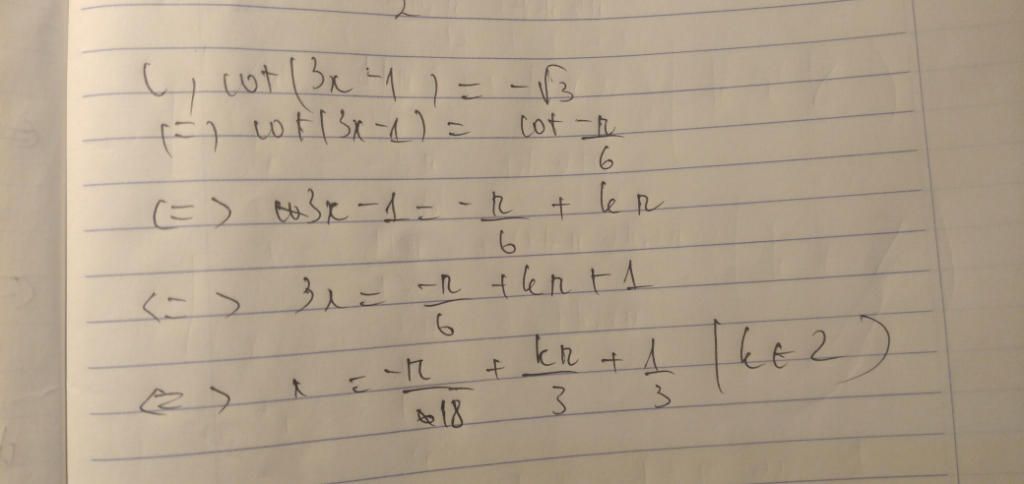 c, cot(3x-1) = -√3
(=) cot(3x-1) = cot -π/6
(=> 3x-1 = -π/6 + kπ
<=> 3x = -π/6 + kπ + 1
<=> x = -π/18 + kπ/3 + 1/3 (k ∈ Z)